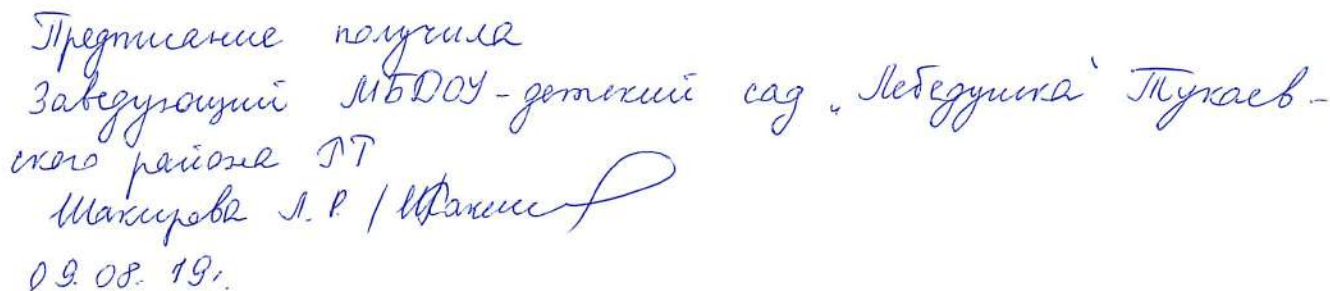 Предписание получила
Заведующий МБДОУ-детский сад „Лебедушка" Тукаев-
ского района РТ
Шакирова Л.Р. /
09.08.19г.